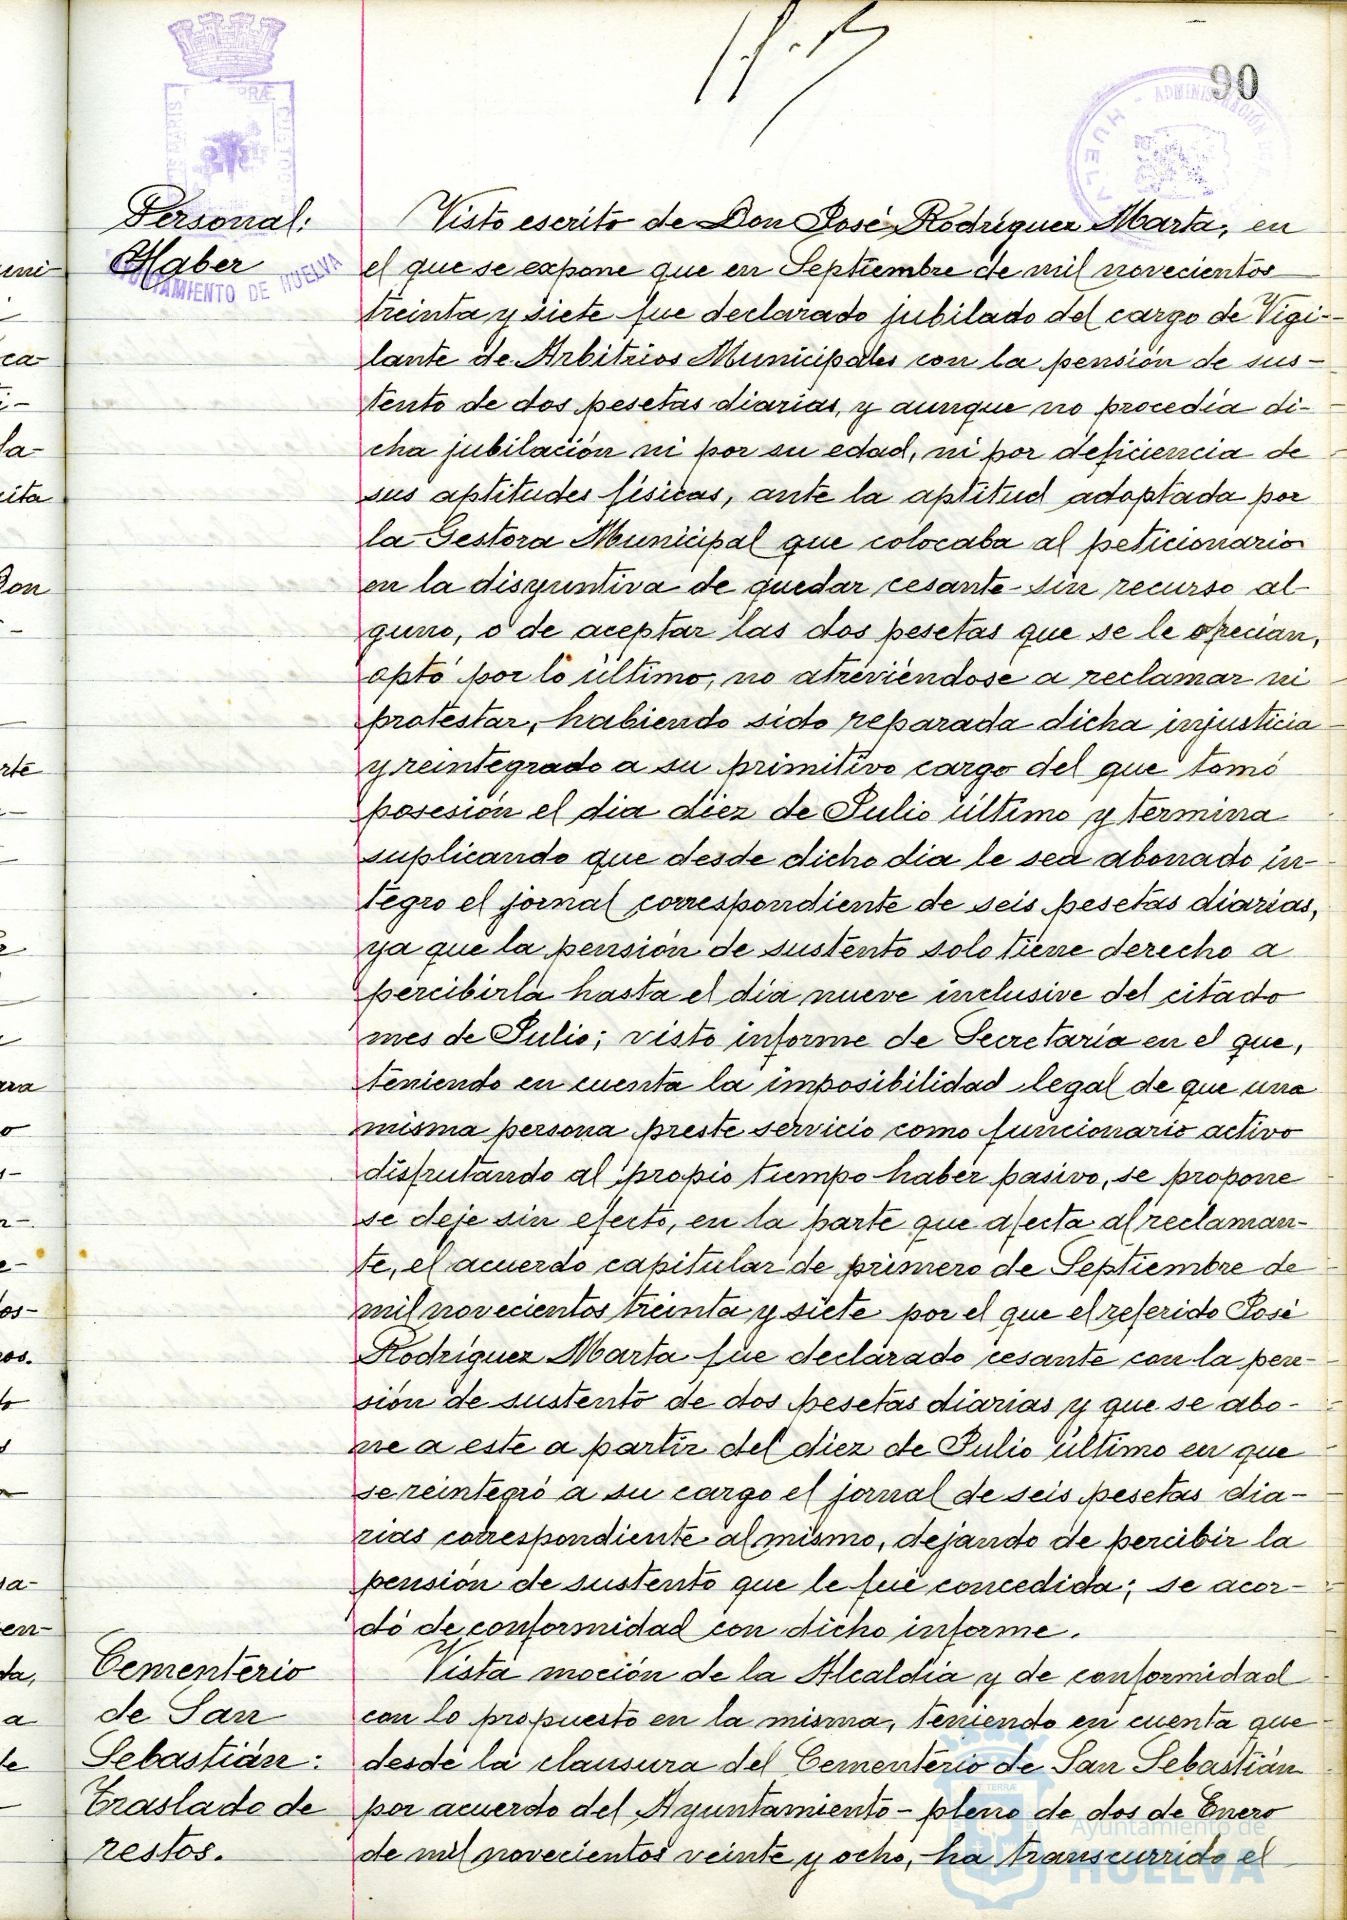 90
Personal:
Haber
AYUNTAMIENTO DE HUELVA
ADMINISTRACIÓN
HUELVA
Visto escrito de Don José Rodríguez Marta, en
el que se expone que en Septiembre de mil novecientos
treinta y siete fue declarado jubilado del cargo de Vigi-
lante de Arbitrios Municipales con la pensión de sus-
tento de dos pesetas diarias, y aunque no procedía di-
cha jubilación ni por su edad, ni por deficiencia de
sus aptitudes físicas, ante la aptitud adoptada por
la Gestora Municipal que colocaba al peticionario
en la disyuntiva de quedar cesante sin recurso al-
guno, o de aceptar las dos pesetas que se le ofrecían,
optó por lo último, no atreviéndose a reclamar ni
protestar, habiendo sido reparada dicha injusticia
y reintegrado a su primitivo cargo del que tomó
posesión el dia diez de Julio último y termina
suplicando que desde dicho dia le sea abonado ín-
tegro el jornal correspondiente de seis pesetas diarias,
ya que la pensión de sustento solo tiene derecho a
percibirla hasta el día nueve inclusive del citado
mes de Julio; visto informe de Secretaría en el que,
teniendo en cuenta la imposibilidad legal de que una
misma persona preste servicio como funcionario activo
disfrutando al propio tiempo haber pasivo, se propone
se deje sin efecto, en la parte que afecta al reclaman-
te, el acuerdo capitular de primero de Septiembre de
mil novecientos treinta y siete por el que el referido José
Rodríguez Marta fue declarado cesante con la pen-
sión de sustento de dos pesetas diarias y que se abo-
ne a este a partir del diez de Julio último en que
se reintegró a su cargo el jornal de seis pesetas dia-
rias correspondiente al mismo, dejando de percibir la
pensión de sustento que le fué concedida; se acor-
dó de conformidad con dicho informe.
Cementerio
de San
Sebastián:
Traslado de
restos.
Vista moción de la Alcaldía y de conformidad
con lo propuesto en la misma, teniendo en cuenta que
desde la clausura del Cementerio de San Sebastián
por acuerdo del Ayuntamiento-pleno de dos de Enero
de mil novecientos veinte y ocho, ha transcurrido el
Ayuntamiento de
HUELVA